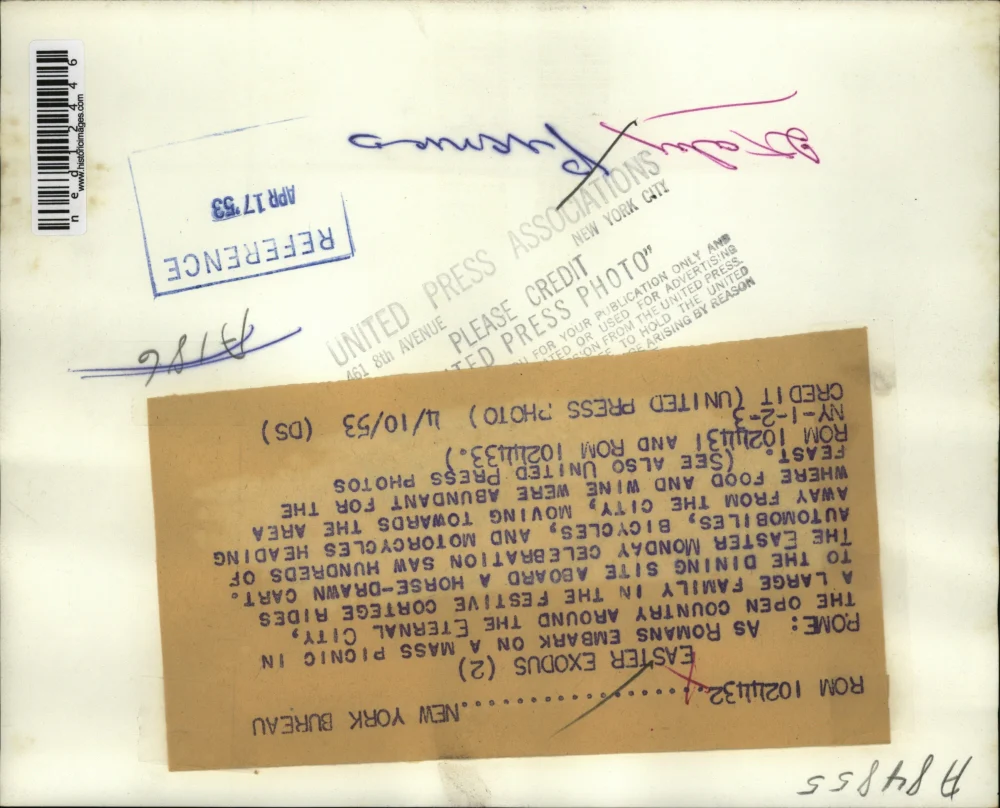 ROM 1024432....................NEW YORK BUREAU
EASTER EXODUS (2)
ROME: AS ROMANS EMBARK ON A MASS PICNIC IN
THE OPEN COUNTRY AROUND THE ETERNAL CITY,
A LARGE FAMILY IN THE FESTIVE CORTEGE RIDES
TO THE DINING SITE ABOARD A HORSE-DRAWN CART.
THE EASTER MONDAY CELEBRATION SAW HUNDREDS OF
AUTOMOBILES, BICYCLES, AND MOTORCYCLES HEADING
AWAY FROM THE CITY, MOVING TOWARDS THE AREA
WHERE FOOD AND WINE WERE ABUNDANT FOR THE
FEAST. (SEE ALSO UNITED PRESS PHOTOS
ROM 1024431 AND ROM 1024433.)
NY-1-2-3
CREDIT (UNITED PRESS PHOTO) 4/10/53 (DS)
A84855
A186
REFERENCE
APR 17 '53
Italy
UNITED PRESS ASSOCIATIONS
461 8th AVENUE NEW YORK CITY
PLEASE CREDIT
PRESS PHOTO"
FOR YOUR PUBLICATION ONLY AND
OR USED FOR ADVERTISING
FROM THE UNITED PRESS.
TO HOLD THE UNITED
ARISING BY REASON
www.historicimages.com
ned12446